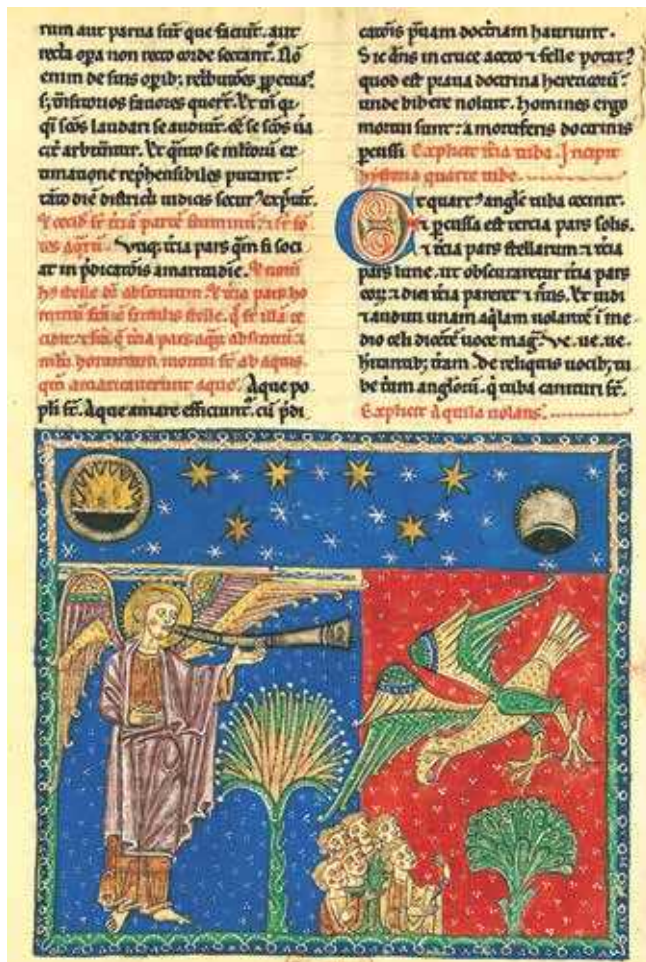 rum aut parua sūt que faciūt. aut
recta opa non recto corde sectant. Nō
enim de suis opib; retbutōes ppetuas
s; trāsitorios fauores querēt. Et cū
qi scōs laudari se audiūt. se scōs
arbitrātur. Et se
timatione rephensibiles putant
tāto diē districti iudicis
Et cecidit sr tciā partē fluminū
aqrū. tcia pars qm si soci
at in pdicatōis amaritudie. Et nomē
stelle absintium. Et tcia pars ho
stelle. q sr illā ce
tcia pars aqr absintiū
hominum mortui st ab aquis
amaricauerunt aque. Aque po
pli st. Aque amare efficiunt. cū pdi
catōis prauam doctrinam hauriunt.
Sic dns in cruce aceto felle potat
quod est praua doctrina hereticorū
unde bibere noluit. Homines ergo
mortui sunt a mortiferis doctrinis
pcussi Explicit tcia tuba. Incipit
hystoria quarte tube.
Et quart angls tuba cecinit.
percussa est tercia pars solis.
tcia pars stellarum tcia
pars lune. ut obscuraretur tcia pars
diei tcia pareret Et uidi
audiui unam aqlam uolantē ī me
dio celi dicētē uoce mag. ue. ue. ue
hitantib; trām. De reliquis uocib; tu
be trium anglorū. q tuba canituri st.
Explicit Aquila uolans.